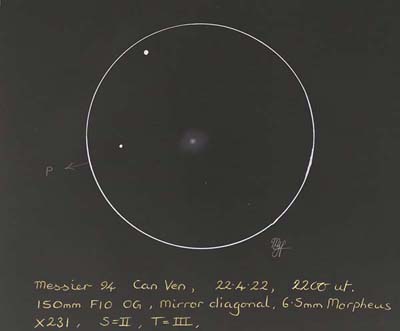 P
Messier 94 Can Ven, 22.4.22, 2200 ut.
150mm F10 OG, mirror diagonal, 6.5mm Morpheus
X231, S=II, T=III,